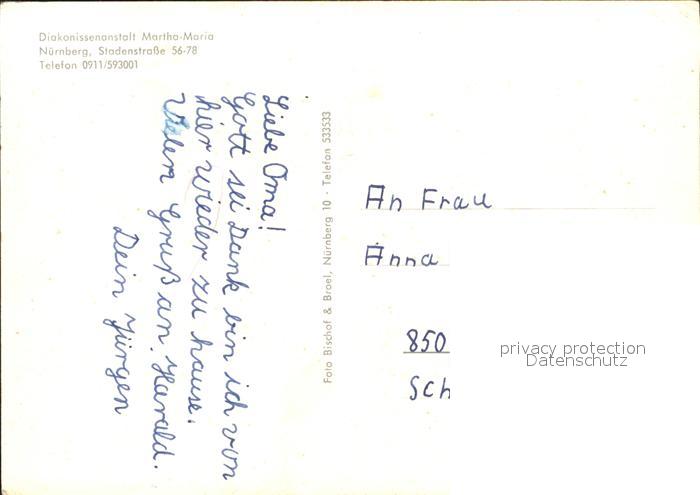 Diakonissenanstalt Martha-Maria
Nürnberg, Stadenstraße 56-78
Telefon 0911/593001
Liebe Oma!
Gott sei Dank bin ich von
hier wieder zu hause.
Vielen Gruß an Harald.
Dein Jürgen
Foto Bischof & Broel, Nürnberg 10 · Telefon 533533
An Frau
Anna
850
Sch
privacy protection
Datenschutz